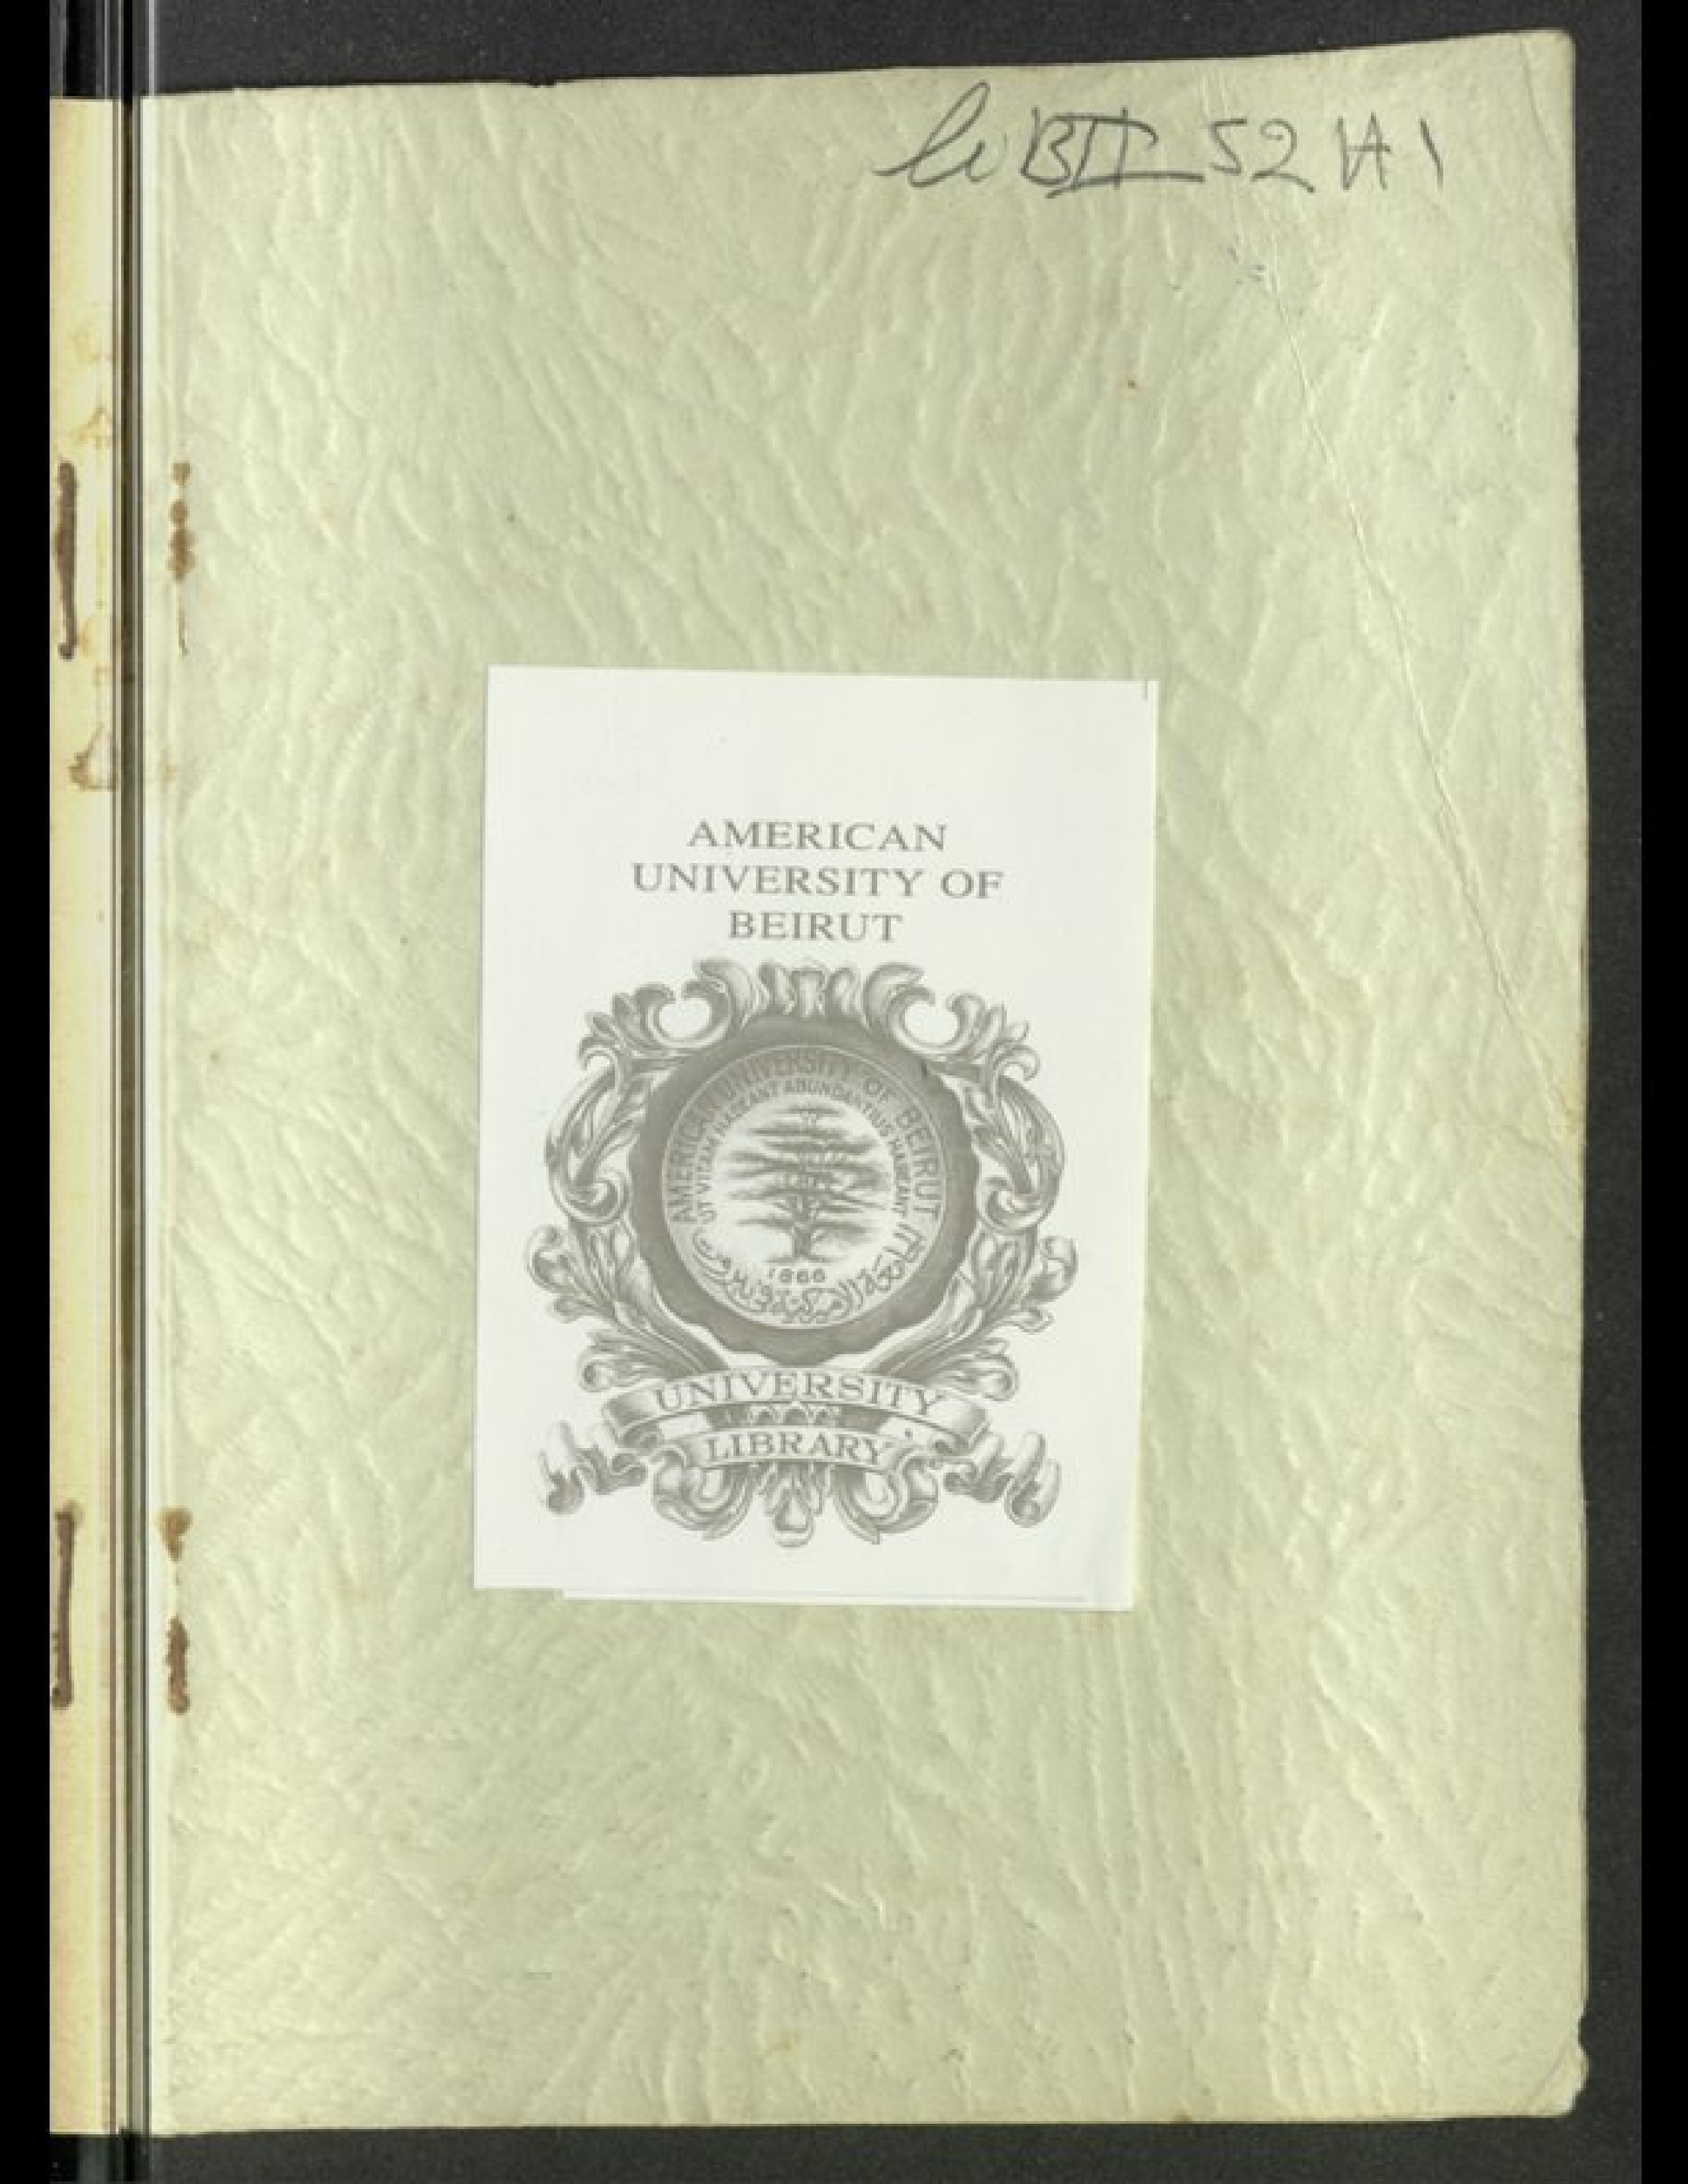 BII 52 A 1
AMERICAN
UNIVERSITY OF
BEIRUT
AMERICAN UNIVERSITY OF BEIRUT
UT VITAM HABEANT ABUNDANTIUS HABEANT
1866
الجامعة الاميركية في بيروت
UNIVERSITY
LIBRARY